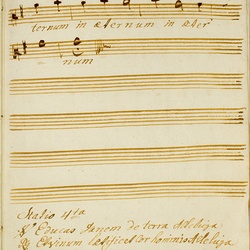 ternum in æternum in æter
num
Statio 4ta
℣ Educas Panem de terra Alleluja
℟ Et Vinum lætificet Cor hominis Alleluja